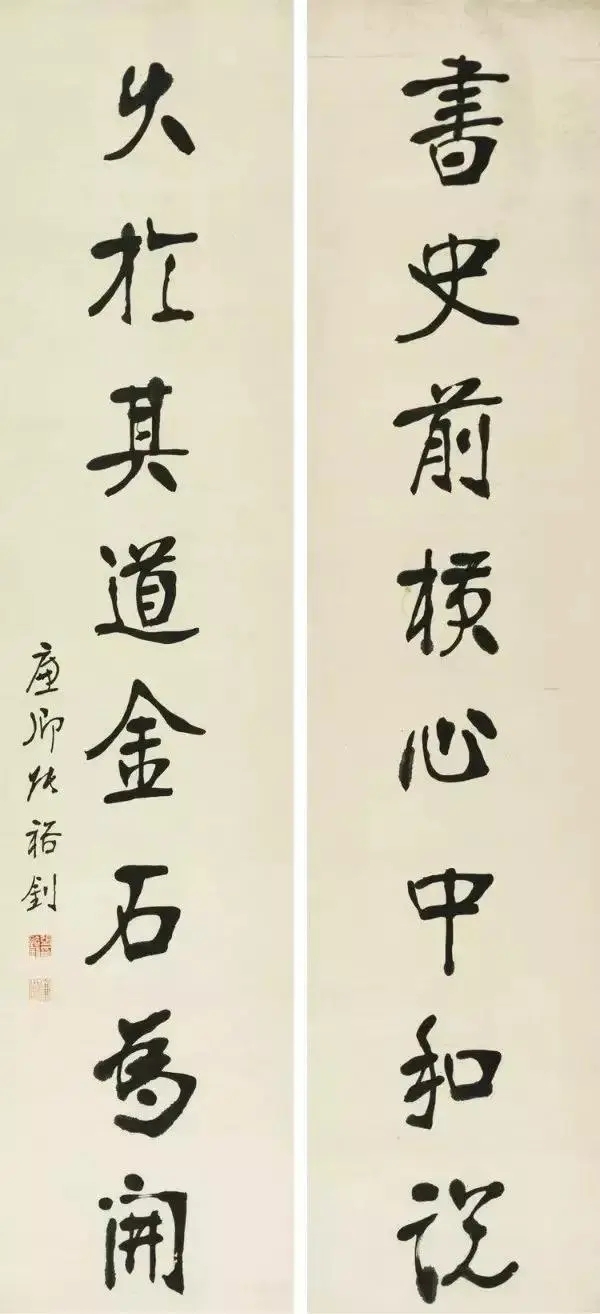 書史前橫心中和說
久於其道金石為開
廉卿張裕釗